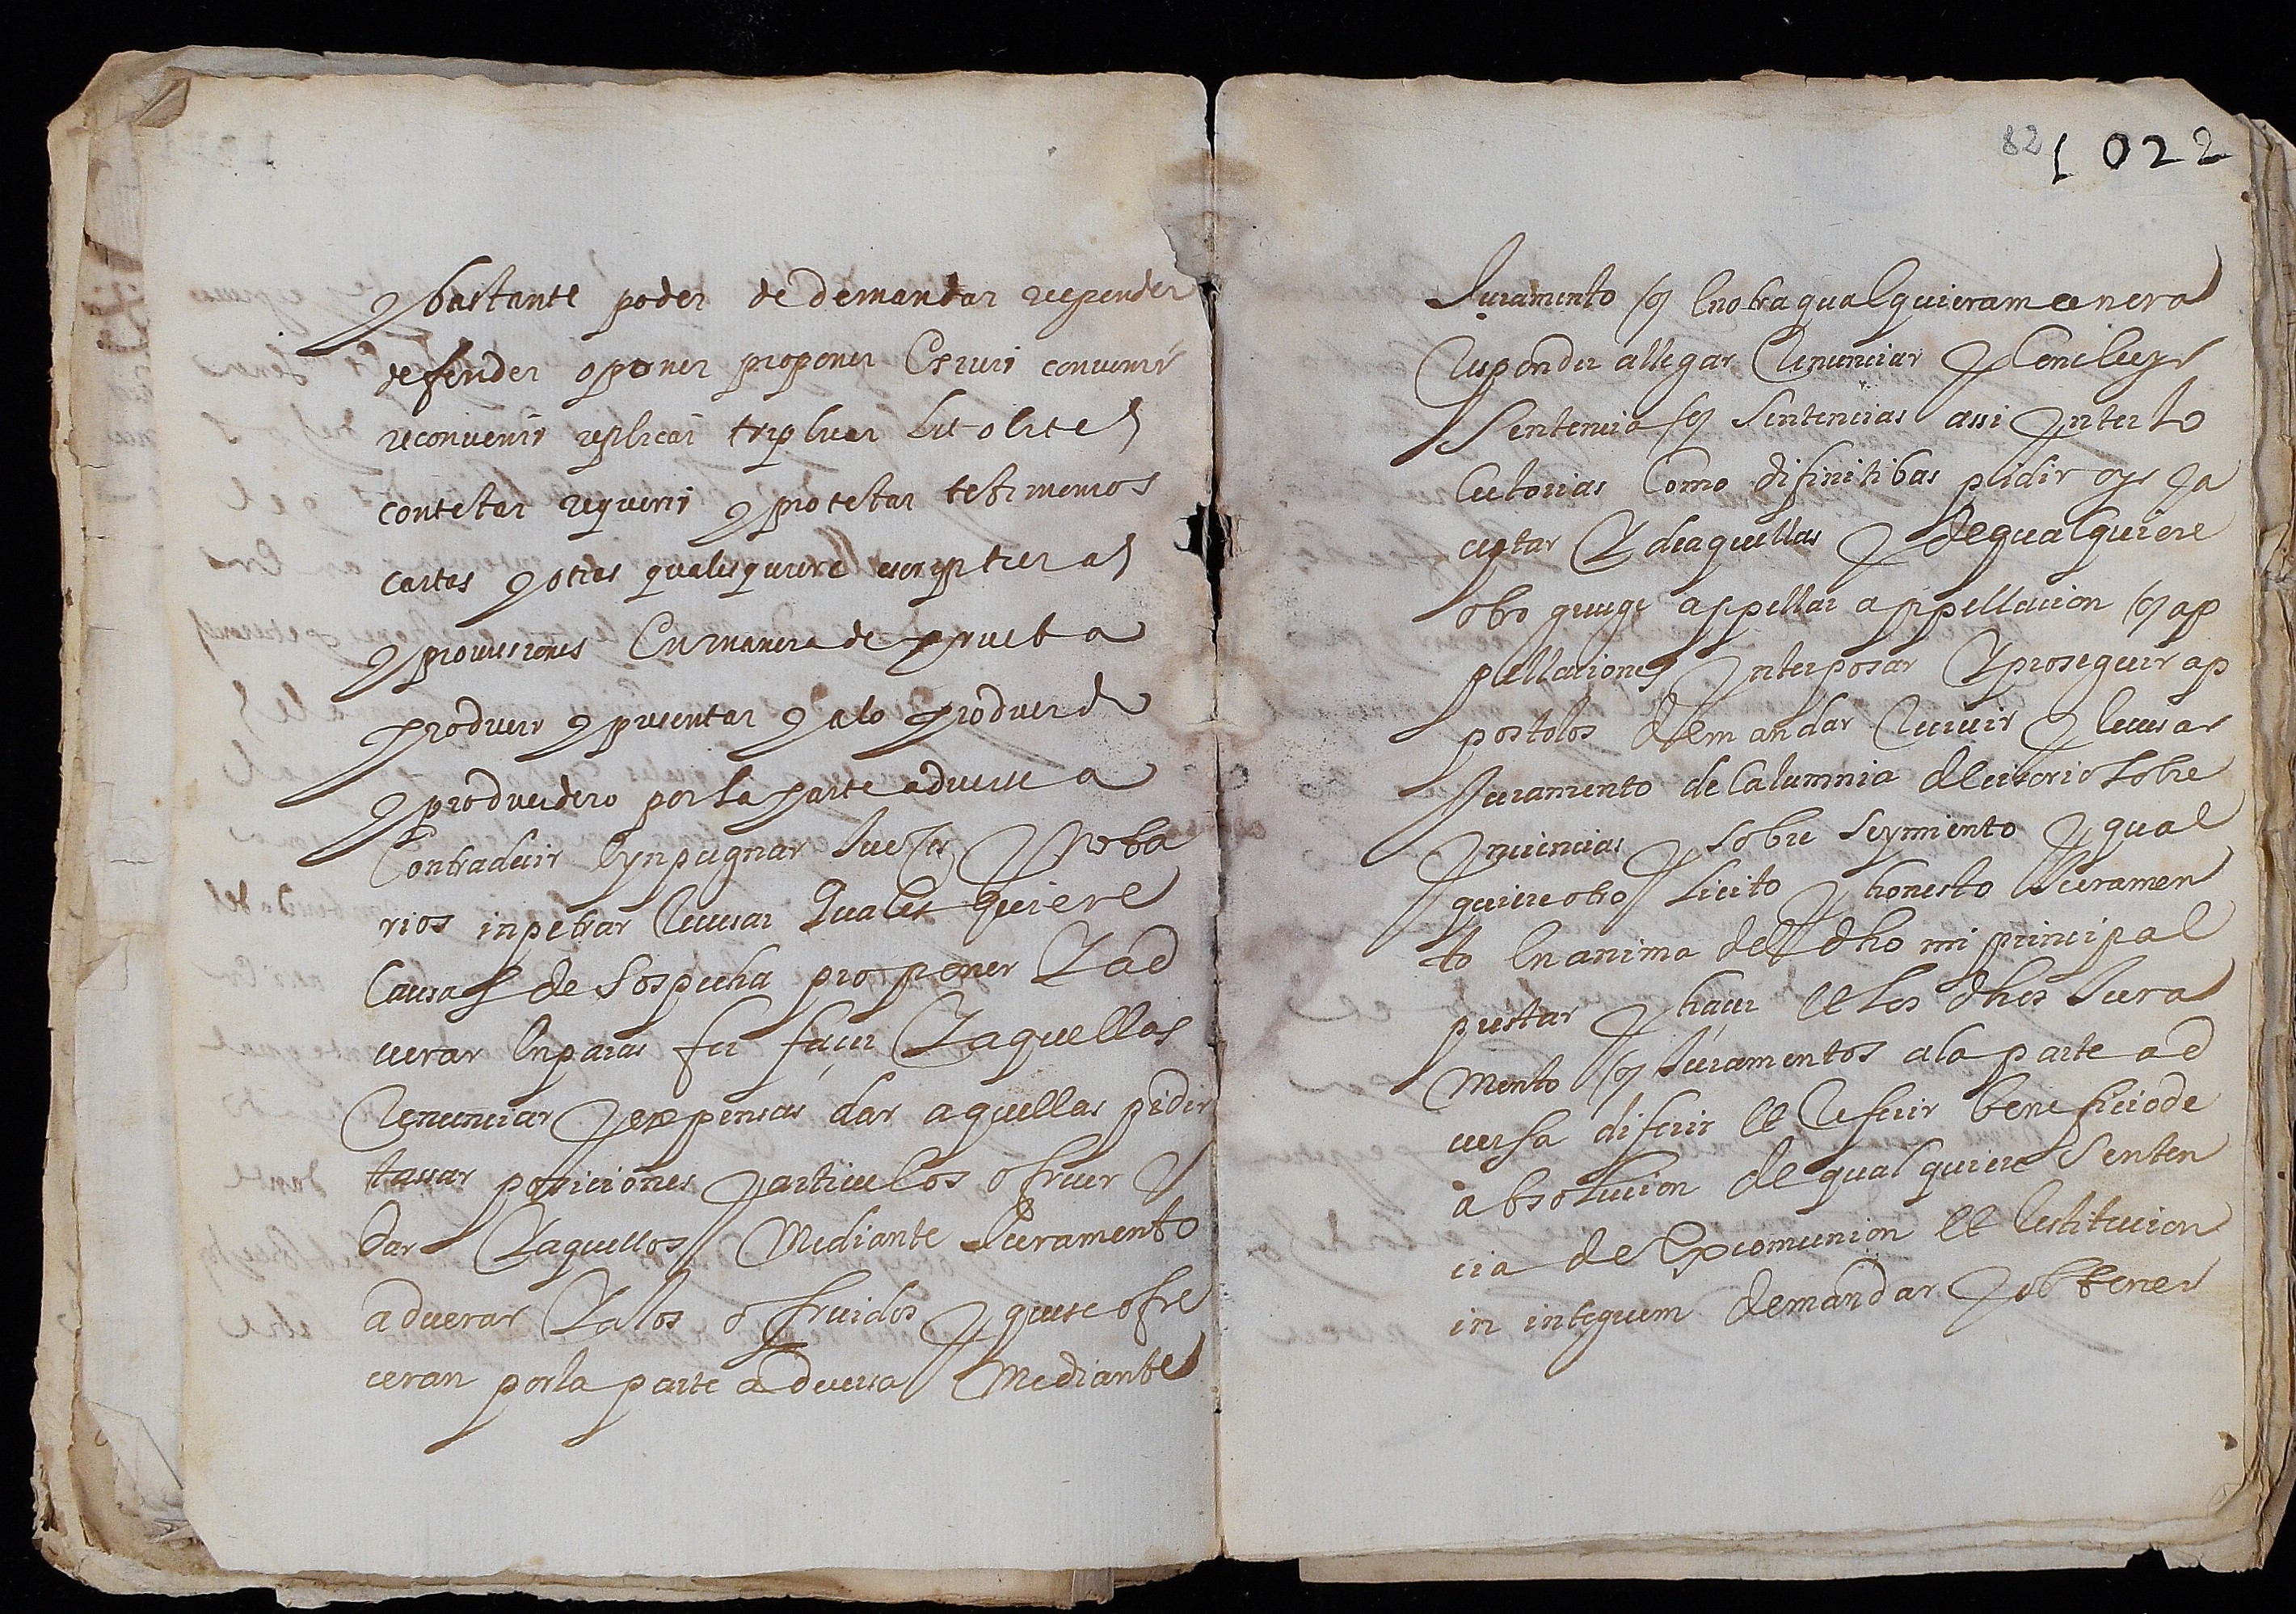 y bastante poder de demandar responder
defender oponer proponer Exivir convenir
reconvenir replicar triplicar Lit o lites
contestar requerir y protestar testimonios
cartas y otras qualesquiere escripturas
y provissiones En manera de prueba
producir y presentar y a lo producido
y producidero por la parte adversa
Contradecir E ynpugnar Jueces y Nota
rios inpetrar Recusar Quales quiere
Causas de Sospecha proponer Y ad
verar Expensas fer façer Y aquellas
Renunciar y expensas dar aquellas pidir
tassar posiciones y articulos ofrecer y
dar Y aquellos Mediante Juramento
adverar Y a los ofrecidos y que se ofre
ceran por la parte adversa Mediante
82 1022
Juramento o En otra qualquiera manera
Responder allegar Renunciar y Concluyr
Sentencia o Sentencias assi ynterlo
cutorias Como difinitibas pidir oyr ya
ceptar Y de aquellas y de qualquiere
otro greuge appellar appellacion o ap
pellaciones ynterposar Y proseguir ap
postolos demandar Recivir y Recusar
Juramento de Calumnia decisorio Sobre
ynciencias y Sobre Seymiento y qual
quiere otro Licito y honesto Juramen
to En anima del dho mi principal
prestar y haçer et los dhos Jura
mento o Juramentos a la parte ad
versa diferir et Referir beneficio de
absolucion de qualquiere Senten
cia de Excomunion et Restitucion
in integrum demandar y obtener